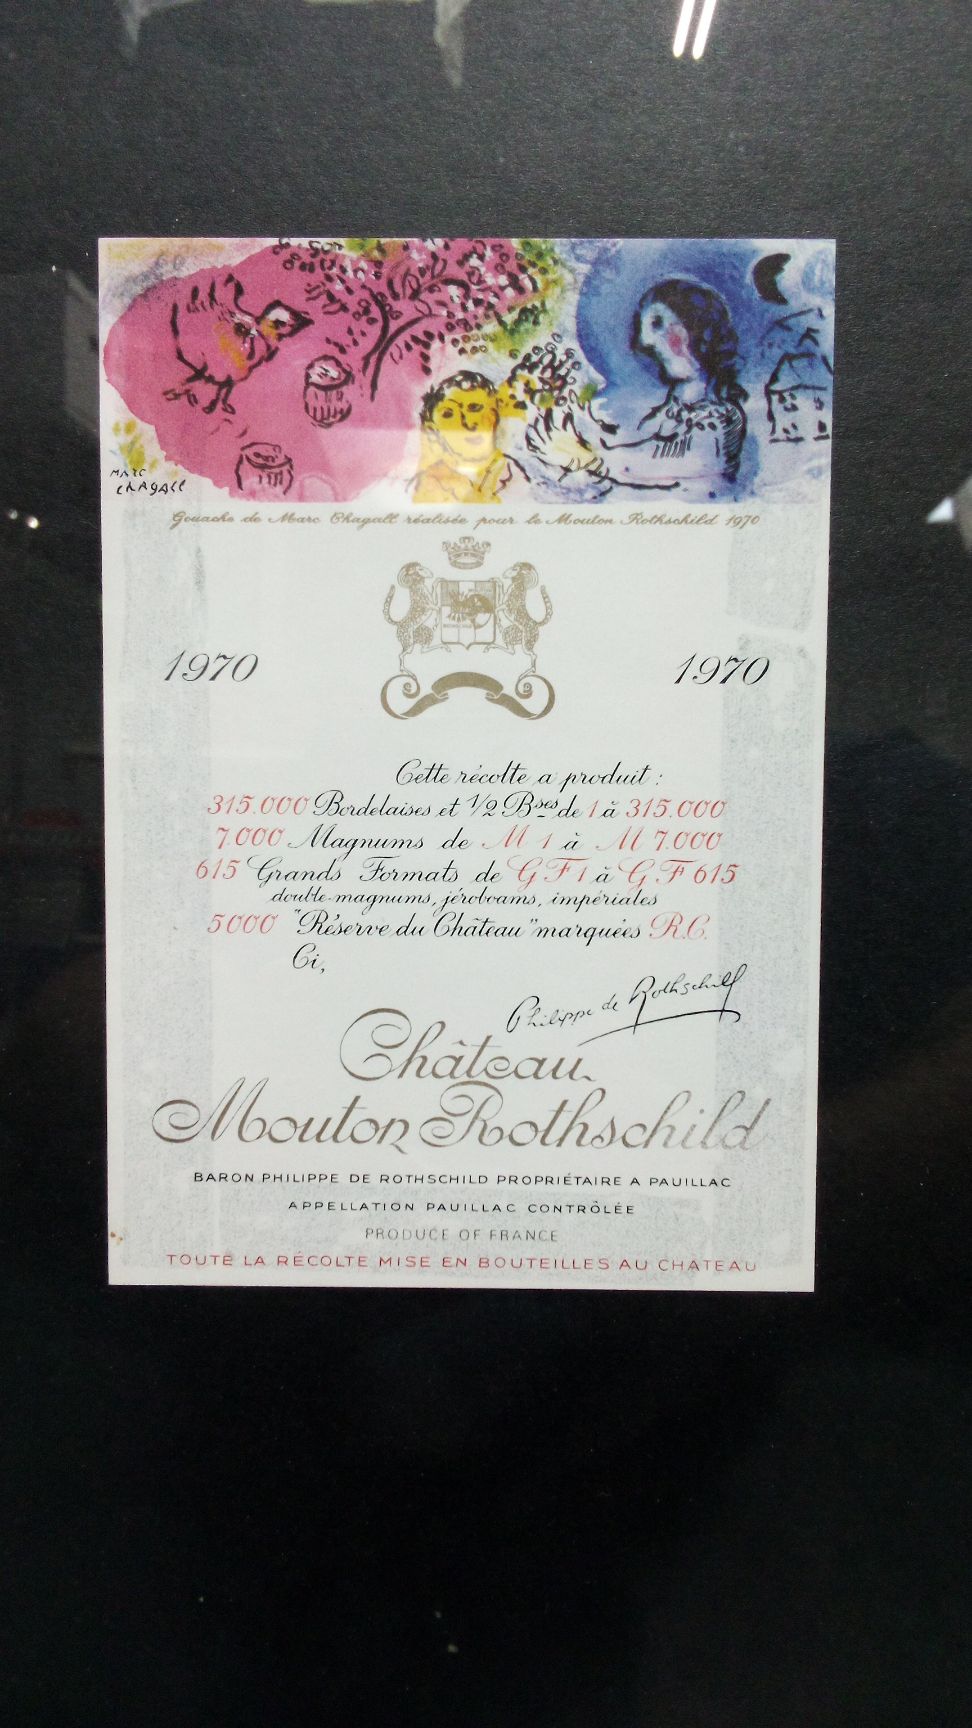 MARC
CHAGALL
Gouache de Marc Chagall réalisée pour le Mouton Rothschild 1970
1970 1970
Cette récolte a produit :
315.000 Bordelaises et 1/2 Bses de 1 à 315.000
7.000 Magnums de M 1 à M 7.000
615 Grands Formats de G F 1 à G F 615
double-magnums, jéroboams, impériales
5000 "Réserve du Château" marquées R.C.
Ci,
Philippe de Rothschild
Château
Mouton Rothschild
BARON PHILIPPE DE ROTHSCHILD PROPRIÉTAIRE A PAUILLAC
APPELLATION PAUILLAC CONTRÔLÉE
PRODUCE OF FRANCE
TOUTE LA RÉCOLTE MISE EN BOUTEILLES AU CHÂTEAU